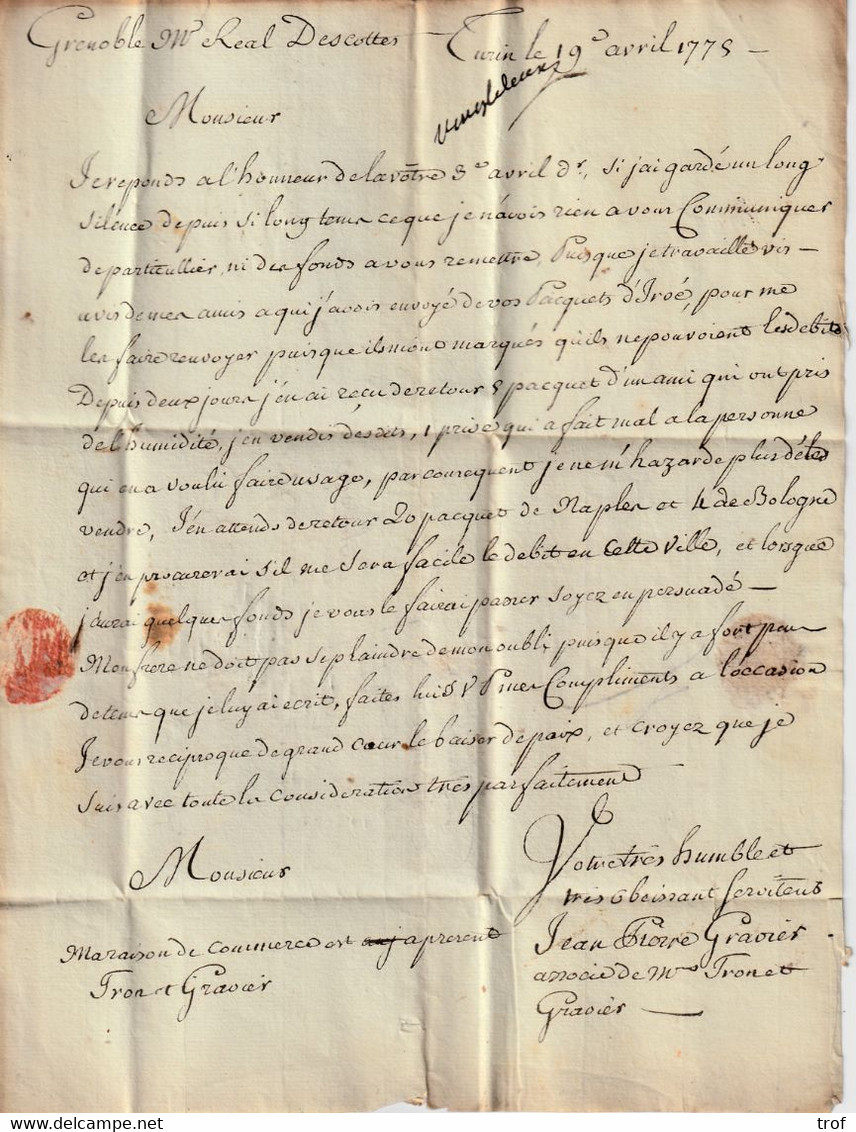 Grenoble Mr Real Descottes Turin le 19e avril 1778
Monsieur
Je reponds a l'honneur de la vôtre 8e avril dr, si j'ai gardé un long
silence depuis si long tems ce que je n'avois rien a vous Communiquer
de particullier, ni des fonds a vous remettre, Puisque je travaille vis
a vis de mes amis a qui j'avois envoyé de vos Pacquets d'Iroé, pour me
les faire renvoyer puisque ils m'ont marqués qu'ils ne pouvoient les debiter
Depuis deux jours j'en ai recu de retour 8 pacquet d'un ami qui ont pris
de l'humidité, j'en vendis desdits, 1 prise qui a fait mal a la personne
qui en a voulu faire usage, par consequent je ne m'hazarde plus de les
vendre, J'en attends de retour 20 pacquet de Naples et 4 de Bologne
et j'en procurerai s'il me sera facile le debit en cette ville, et lorsque
j'aurai quelques fonds je vous le fairai passer soyez en persuadé
Mon frere ne doit pas se plaindre de mon oubli, puisque il y a fort peu
de tems que je luy ai ecrit, faites lui s v P mes Compliments a l'occasion
Je vous reciproque de grand cœur le baiser de paix, et croyez que je
suis avec toute la consideration très parfaitement
Monsieur
Votre très humble et
très obeissant serviteur
Ma raison de commerce est a present
Jean Pierre Gravier
Tron et Gravier
associé de Mrs Tron et
Gravier
trof